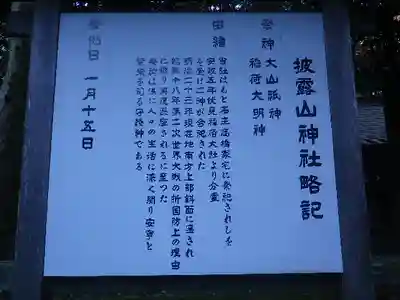 披露山神社略記
祭神 大山祇神
稲荷大明神
由緒
当社はもと石主高橋家宅に祭祀されしを
安政五年伏見稲荷大社より分霊
を受け二神が合祀された
明治二十三年現在地南方上部斜面に遷され
昭和十八年第二次世界大戦の折国防上の理由
に依り再度遷座されるに至った
発祥は漁に人々の生活に深く関り安寧と
繁栄を司る守護神である
祭祀日 一月十五日